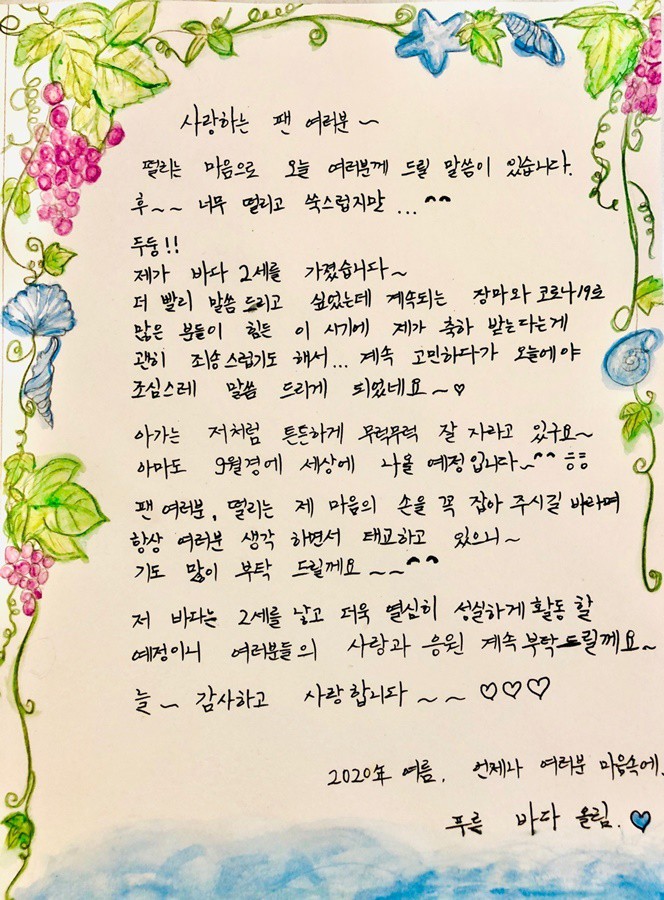 사랑하는 팬 여러분~
떨리는 마음으로 오늘 여러분께 드릴 말씀이 있습니다.
후~~ 너무 떨리고 쑥스럽지만 ...^^
두둥!!
제가 바다 2세를 가졌습니다~
더 빨리 말씀 드리고 싶었는데 계속되는 장마와 코로나19로
많은 분들이 힘든 이 시기에 제가 축하 받는다는게
괜히 죄송스럽기도 해서... 계속 고민하다가 오늘에야
조심스레 말씀 드리게 되었네요~♡
아가는 저처럼 튼튼하게 무럭무럭 잘 자라고 있구요~
아마도 9월경에 세상에 나올 예정입니다~^^ ㅎㅎ
팬 여러분, 떨리는 제 마음의 손을 꼭 잡아 주시길 바라며
항상 여러분 생각 하면서 태교하고 있으니~
기도 많이 부탁 드릴께요~~^^
저 바다는 2세를 낳고 더욱 열심히 성실하게 활동 할
예정이니 여러분들의 사랑과 응원 계속 부탁드릴께요~
늘~ 감사하고 사랑합니다~~♡♡♡
2020年 여름. 언제나 여러분 마음속에.
푸른 바다 올림.♥